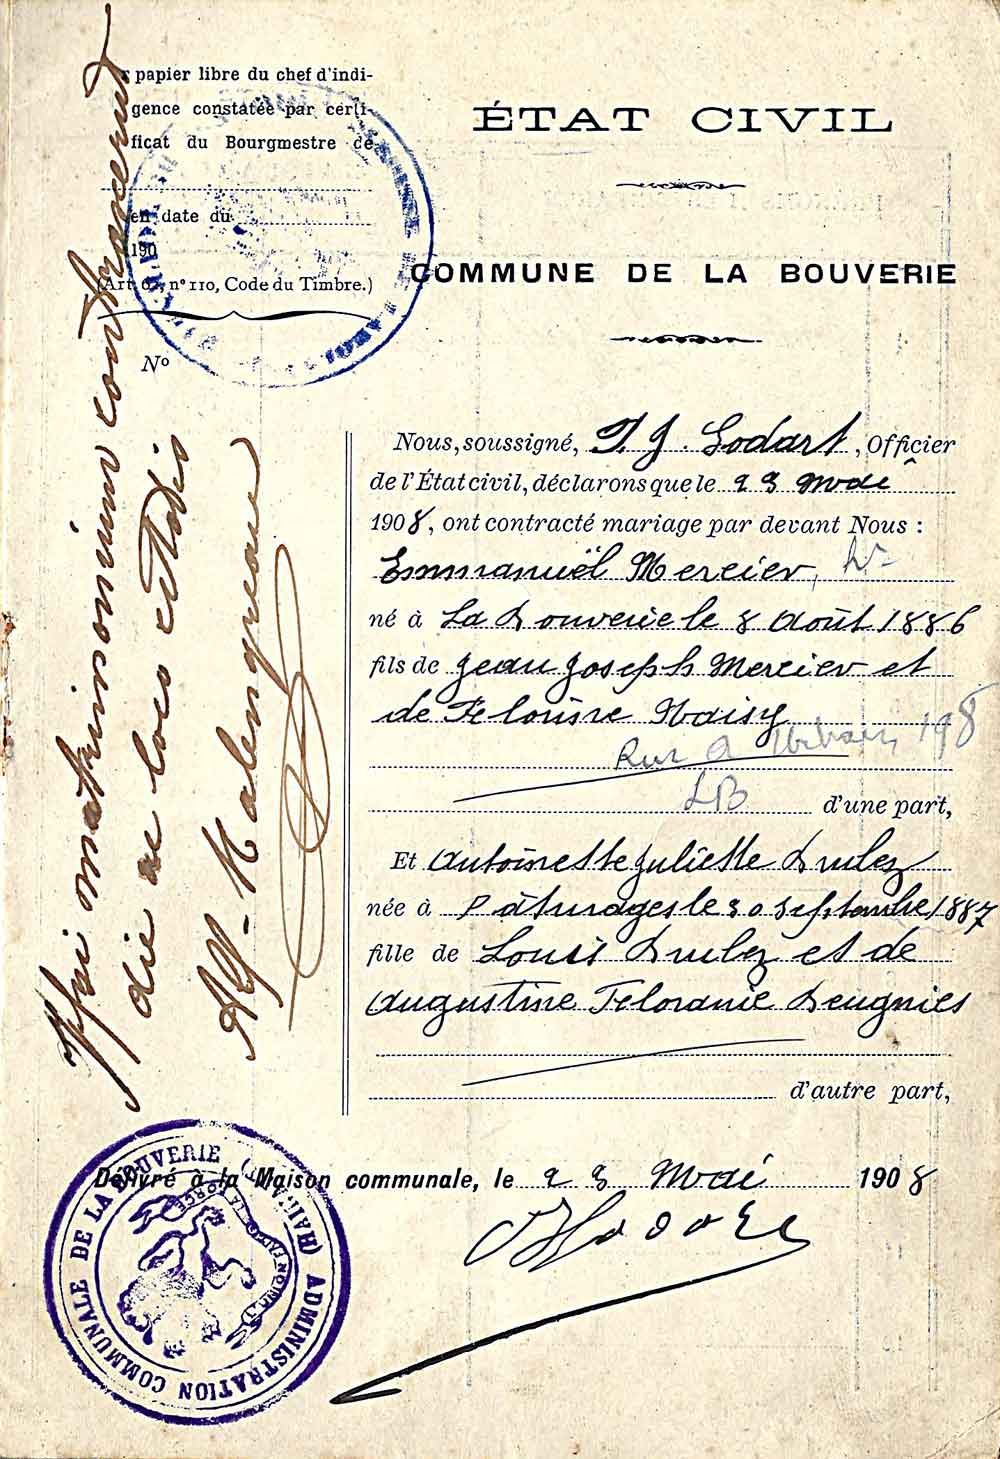 papier libre du chef d'indi-
gence constatée par certi-
ficat du Bourgmestre de
en date du
190
(Art. 62, n° 110, Code du Timbre.)
N°
ÉTAT CIVIL
COMMUNE DE LA BOUVERIE
Nous, soussigné, T. J. Godart, Officier
de l'État civil, déclarons que le 23 Mai
1908, ont contracté mariage par devant Nous :
Emmanuël Mercier,
né à La Bouverie le 8 Août 1886
fils de Jean Joseph Mercier et
de Flourine Haisy
Rue A 198
LB d'une part,
Et Antoinette Juliette Drulez
née à Pâturages le 30 septembre 1887
fille de Louis Drulez et de
Augustine Floranie Beugnies
d'autre part,
Délivré à la Maison communale, le 23 Mai 1908
matrimonium
die ac loco
ADMINISTRATION COMMUNALE DE LA BOUVERIE (HAINAUT)
L'UNION FAIT LA FORCE